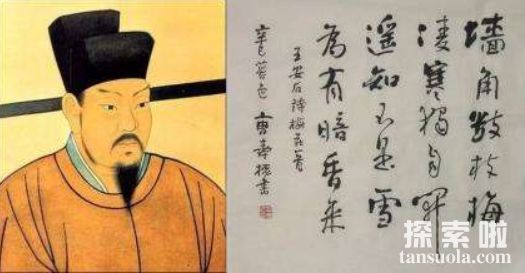 墙角数枝梅
凌寒獨自開
遥知不是雪
為有暗香来
王安石诗梅花一首
探索啦
tansuola.com